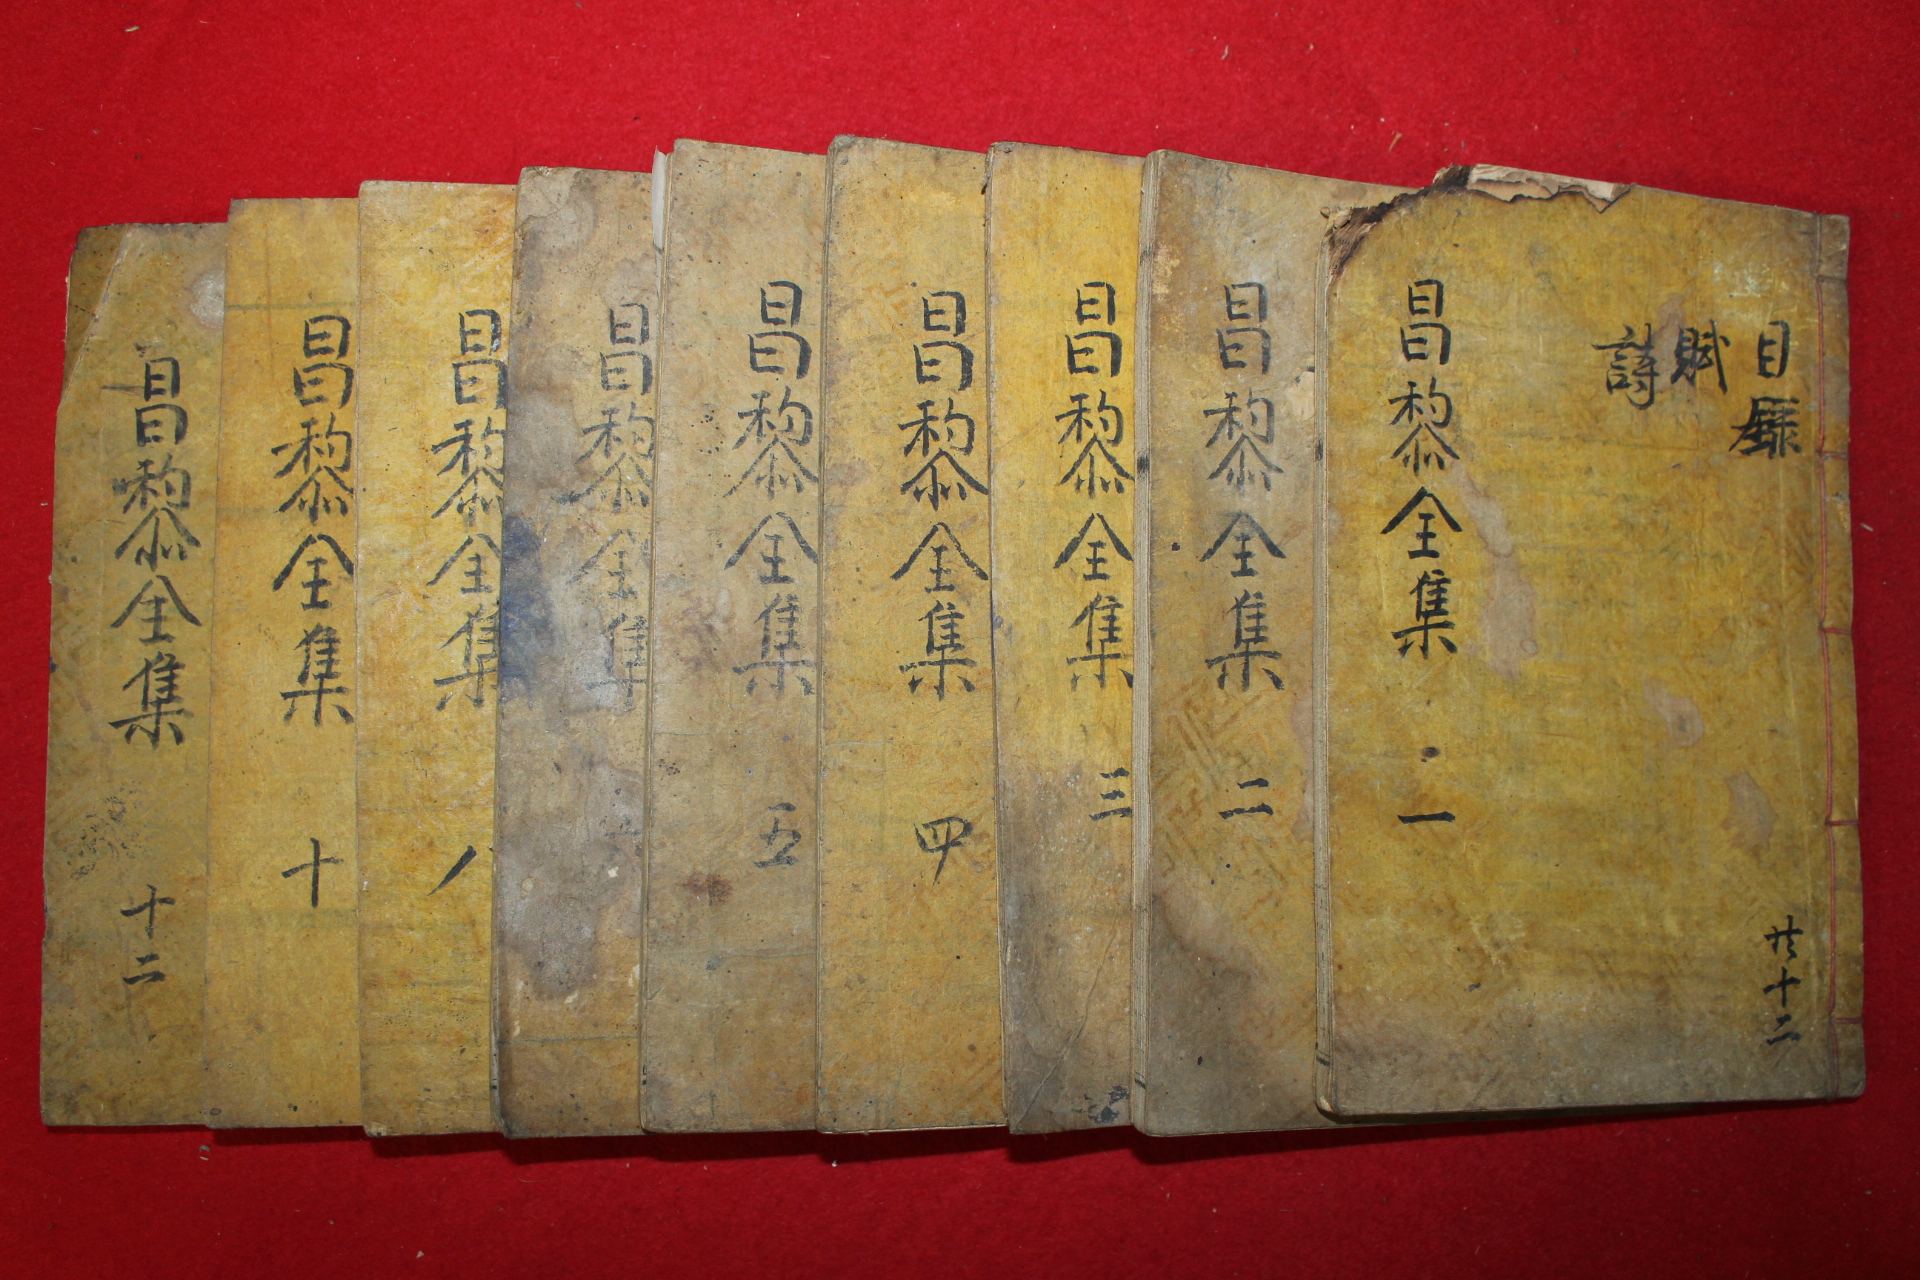 目錄
賦
詩
共十二
昌黎全集 一
昌黎全集 二
昌黎全集 三
昌黎全集 四
昌黎全集 五
昌黎全集
昌黎全集 八
昌黎全集 十
昌黎全集 十二